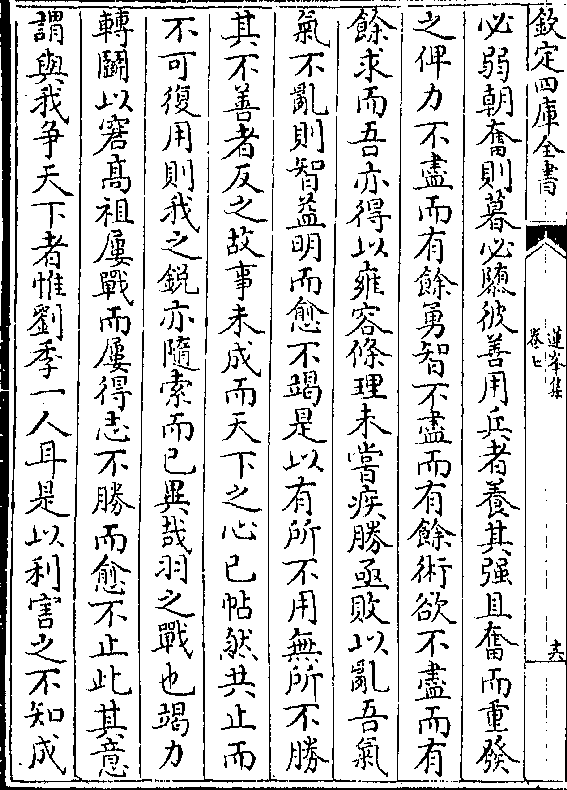 欽定四庫全書
蓮峯集
卷七
六
必弱朝奮則暮必隳彼善用兵者養其强且奮而重發
之俾力不盡而有餘勇智不盡而有餘術欲不盡而有
餘求而吾亦得以雍容條理未嘗疾勝亟敗以亂吾氣
氣不亂則智益明而愈不竭是以有所不用無所不勝
其不善者反之故事未成而天下之心已帖然共止而
不可復用則我之鋭亦隨索而已異哉羽之戰也竭力
轉鬭以窘髙祖屢戰而屢得志不勝而愈不止此其意
謂與我争天下者惟劉季一人耳是以利害之不知成